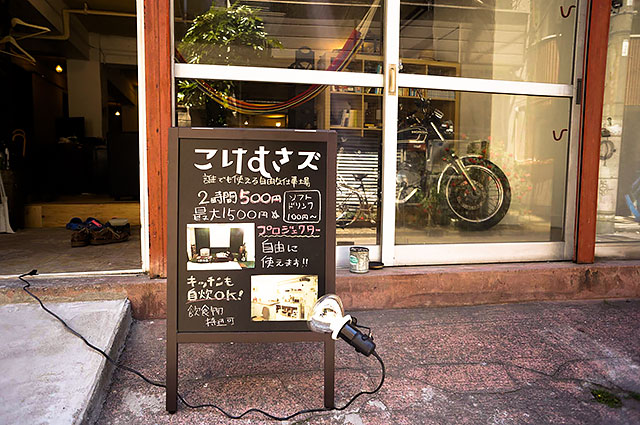 こけむさズ
誰でも使える自由な仕事場
2時間500円
最大1500円
ソフトドリンク
100円〜
プロジェクター
自由に
使えます!!
キッチンも
自炊OK!
飲食物
持込可